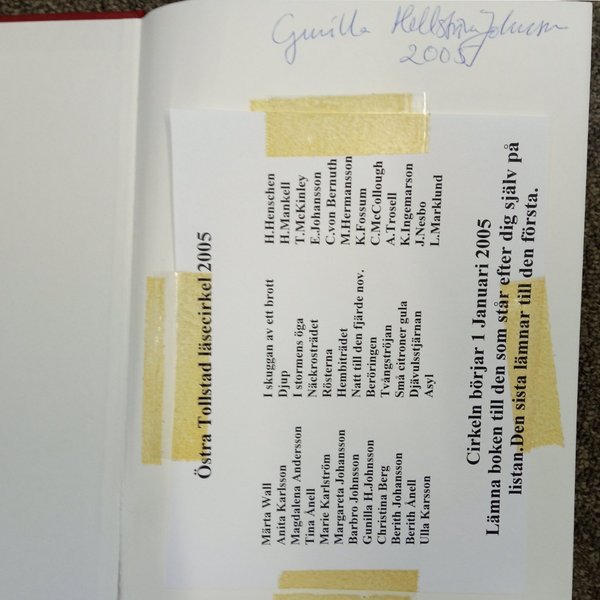 Gunilla Hellström Johnsson
2005
Östra Tollstad läsecirkel 2005
Märta Wall I skuggan av ett brott H.Henschen
Anita Karlsson Djup H.Mankell
Magdalena Andersson I stormens öga T.McKinley
Tina Ånell Näckrosträdet E.Johansson
Marie Karlström Rösterna C.von Bernuth
Margareta Johansson Hembiträdet M.Hermansson
Barbro Johnsson Natt till den fjärde nov. K.Fossum
Gunilla H.Johnsson Beröringen C.McCollough
Christina Berg Tvångströjan A.Trosell
Berith Johansson Små citroner gula K.Ingemarson
Berith Ånell Djävulsstjärnan J.Nesbo
Ulla Karsson Asyl L.Marklund
Cirkeln börjar 1 Januari 2005
Lämna boken till den som står efter dig själv på
listan.Den sista lämnar till den första.